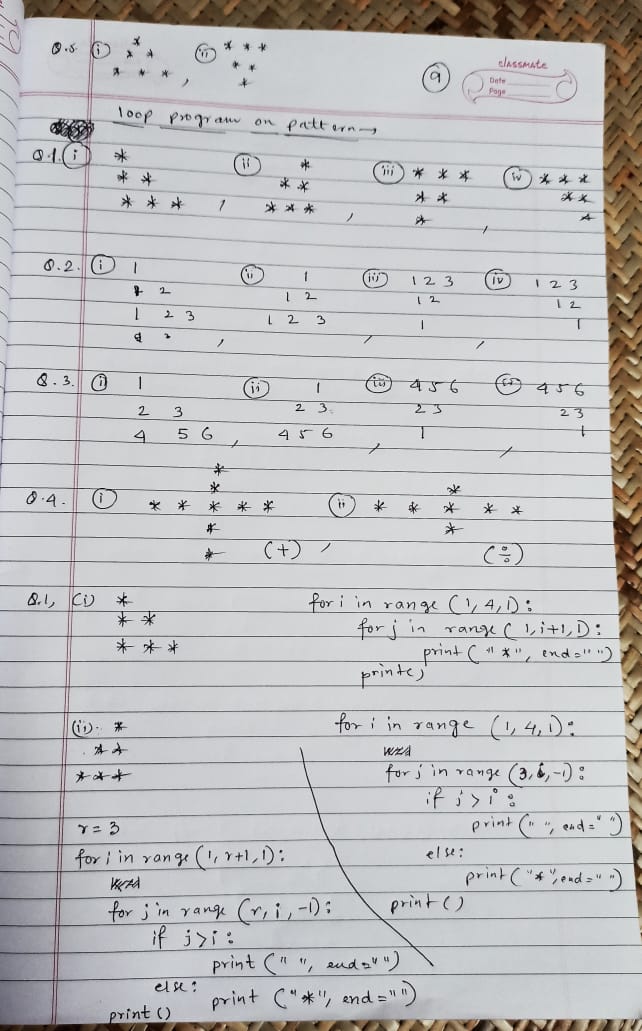 Q.5 (i) * (ii) * * *
* * * *
* * * , *
9
classmate
Date
Page
loop program on pattern→
Q.1. (i) * (ii) * (iii) * * * (iv) * * *
* * * * * * * *
* * * , * * * , * , *
Q.2. (i) 1 (ii) 1 (iii) 1 2 3 (iv) 1 2 3
1 2 1 2 1 2 1 2
1 2 3 , 1 2 3 , 1 , 1
Q.3. (i) 1 (ii) 1 (iii) 4 5 6 (iv) 4 5 6
2 3 2 3 2 3 2 3
4 5 6 , 4 5 6 , 1 , 1
*
* *
Q.4. (i) * * * * * (ii) * * * * *
* *
* (+) , (÷)
Q.1, (i) * for i in range (1, 4, 1):
* * for j in range (1, i+1, 1):
* * * print ("*", end="")
print()
(ii). * for i in range (1, 4, 1):
* *
* * * for j in range (3, i, -1):
if j>i:
print (" ", end=" ")
else:
print ("*", end=" ")
print ()
r = 3
for i in range (1, r+1, 1):
for j in range (r, i, -1):
if j>i:
print (" ", end="")
else:
print ("*", end="")
print ()